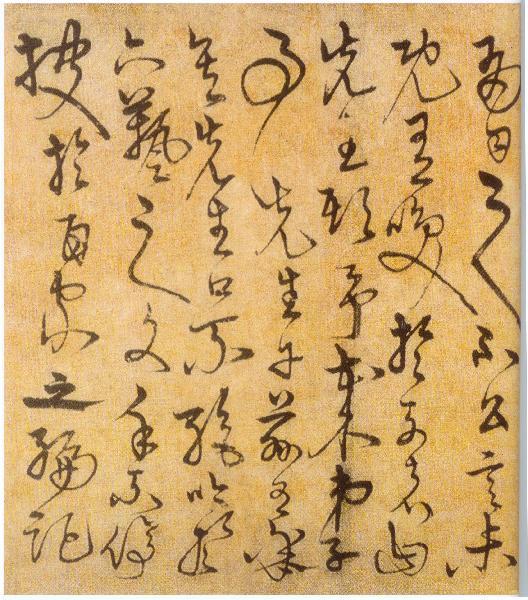 有司之不公言未
既有咲於列者曰
先生欺予哉弟子
事先生于茲有年
矣先生口不絕吟於
六藝之文手不停
披於百家之編記